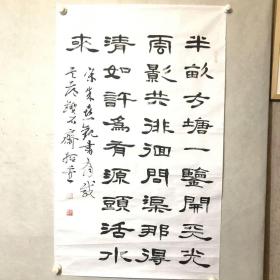 半畝方塘一鑒開天光
雲影共徘徊問渠那得
清如許爲有源頭活水
來
宋朱熹觀書有感
石齋